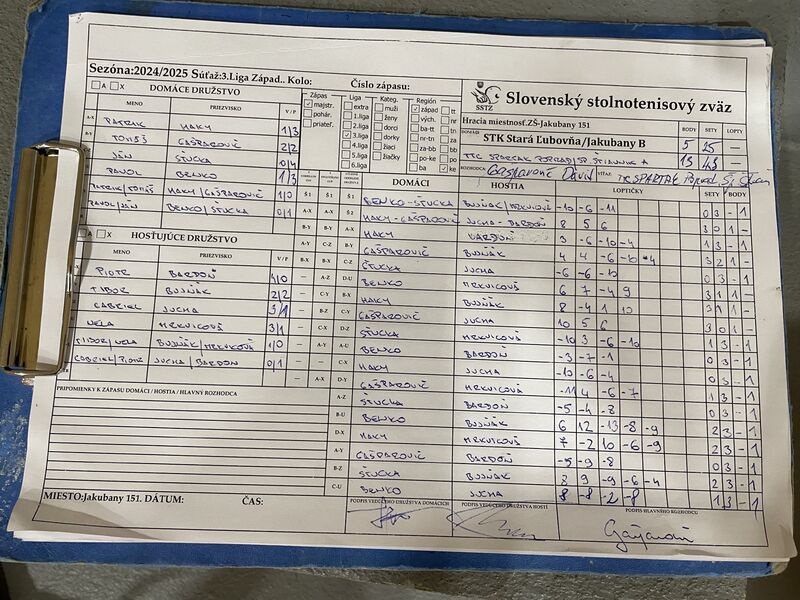 Sezóna:2024/2025 Súťaž:3.Liga Západ.. Kolo: Číslo zápasu:
Slovenský stolnotenisový zväz
SSTZ
A X DOMÁCE DRUŽSTVO
MENO PRIEZVISKO V / P
A-X PATRIK HAKY 1/3
B-Y TOMÁŠ GAŠPAROVIČ 2/2
JÁN ŠTUCKA 0/4
PAVOL BENKO 1/3
PATRIK/TOMÁŠ HAKY/GAŠPAROVIČ 1/0
PAVOL/JÁN BENKO/ŠTUCKA 0/1
A X HOSŤUJÚCE DRUŽSTVO
MENO PRIEZVISKO V / P
PIOTR BARDOŇ 4/0
TIBOR BUJŇÁK 2/2
GABRIEL JUCHA 3/1
NELA MRKVICOVÁ 3/1
TIBOR/NELA BUJŇÁK/MRKVICOVÁ 1/0
GABRIEL/PIOTR JUCHA/BARDOŇ 0/1
PRIPOMIENKY K ZÁPASU DOMÁCI / HOSTIA / HLAVNÝ ROZHODCA
MIESTO:Jakubany 151. DÁTUM: ČAS:
Zápas
majstr.
pohár.
priateľ.
Liga
extra
1.liga
2.liga
3.liga
4.liga
5.liga
6.liga
Kateg.
muži
ženy
dorci
dorky
žiaci
žiačky
Región
západ tt
vých. nr
ba-tt
nr-tn
tn
za-bb za
po-ke po
ba ke
Hracia miestnosť.ZŠ-Jakubany 151 BODY SETY LOPTY
DOMÁCI STK Stará Ľubovňa/Jakubany B 5 25 —
TTC SPARTAK POPRAD/SP. ŠTIAVNIK A 13 43 —
ROZHODCA: Gašparovič Dávid VÍŤAZ: TTC SPARTAK Poprad
DOMÁCI HOSTIA LOPTIČKY SETY BODY
Š 1 Š 1 Š 1 BENKO-ŠTUCKA BUJŇÁK/MRKVICOVÁ -10 -6 -11 0 3 - 1
A-X A-X Š 2 HAKY-GAŠPAROVIČ JUCHA-BARDOŇ 8 5 6 3 0 1 -
B-Y B-Y A-X HAKY BARDOŇ 3 -6 -10 -4 1 3 - 1
A-Y C-Z B-Y GAŠPAROVIČ BUJŇÁK 4 4 -6 -10 4 3 2 1 -
B-X B-X C-Z ŠTUCKA JUCHA -6 -6 -10 0 3 - 1
— A-Z D-U BENKO MRKVICOVÁ 6 7 -4 9 3 1 1 -
— C-Y B-X HAKY BUJŇÁK 8 -4 1 10 3 1 1 -
— B-Z C-Y GAŠPAROVIČ JUCHA 10 5 6 3 0 1 -
— C-X D-Z ŠTUCKA MRKVICOVÁ -10 3 -6 -10 1 3 - 1
— A-Y A-U BENKO BARDOŇ -3 -7 -1 0 3 - 1
— — C-X HAKY JUCHA -10 -6 -4 0 3 - 1
— A-X D-Y GAŠPAROVIČ MRKVICOVÁ -11 4 -6 -7 1 3 - 1
A-Z ŠTUCKA BARDOŇ -5 -4 -8 0 3 - 1
B-U BENKO BUJŇÁK 6 12 -13 -8 -9 2 3 - 1
D-X HAKY MRKVICOVÁ 7 -2 10 -6 -9 2 3 - 1
A-Y GAŠPAROVIČ BARDOŇ -5 -9 -8 0 3 - 1
B-Z ŠTUCKA BUJŇÁK 8 9 -9 -6 -4 2 3 - 1
C-U BENKO JUCHA 8 -8 -2 -8 1 3 - 1
PODPIS VEDÚCEHO DRUŽSTVA DOMÁCICH PODPIS VEDÚCEHO DRUŽSTVA HOSTÍ PODPIS HLAVNÉHO ROZHODCU